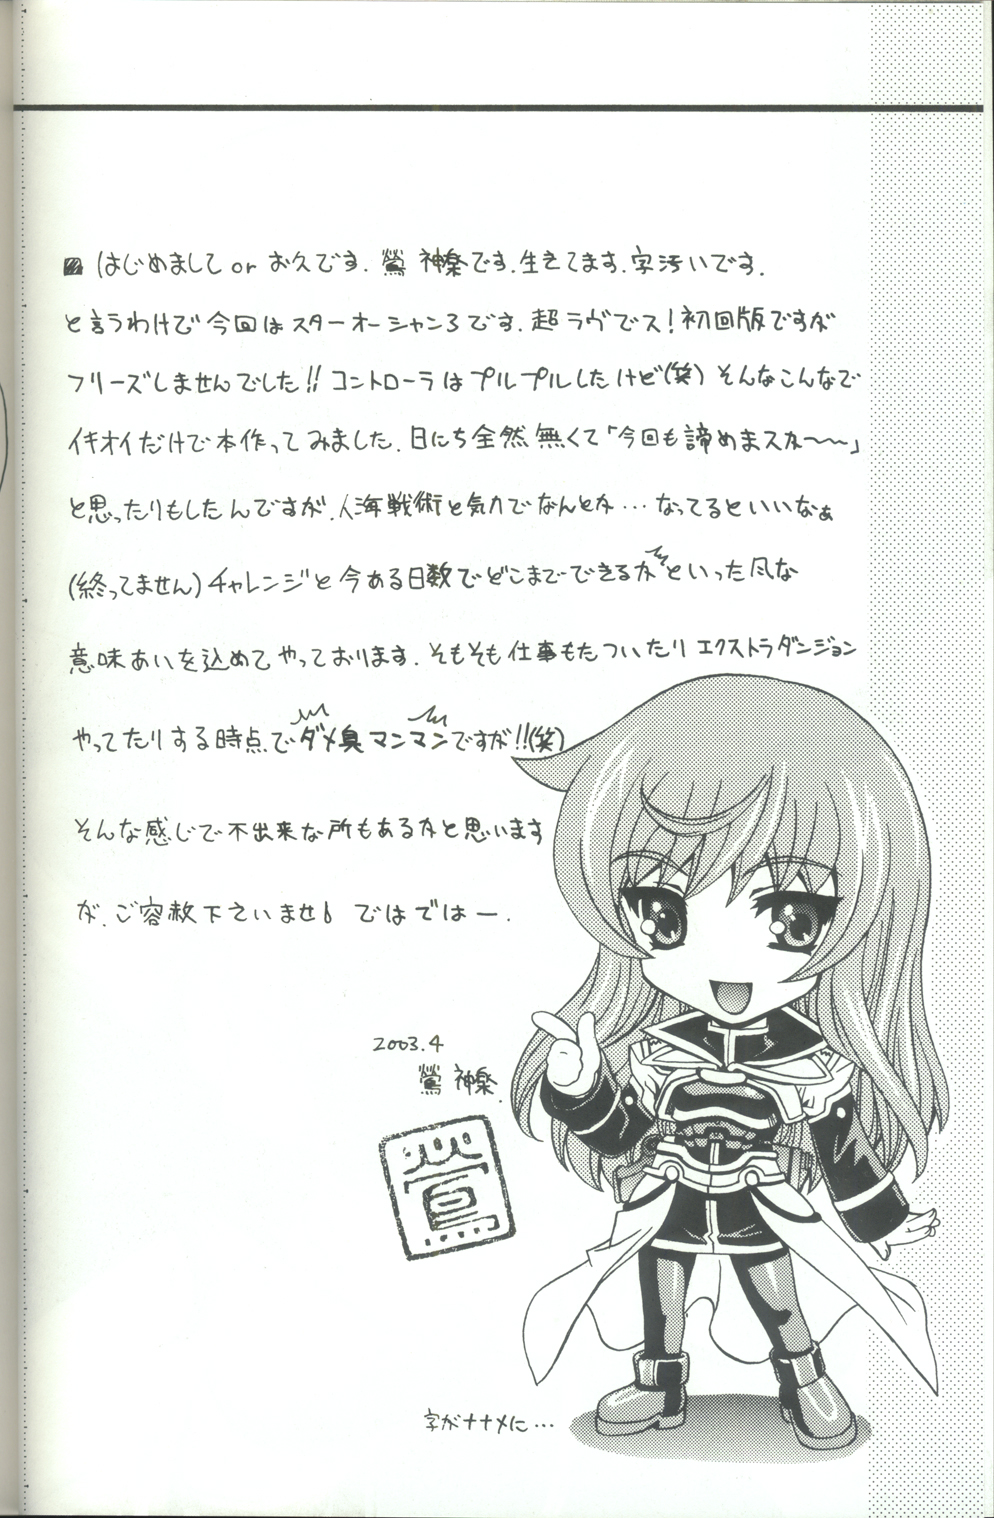 はじめまして or お久です. 鶯 神楽です. 生きてます. 字汚いです.
と言うわけで今回はスターオーシャン3です. 超ラヴでス！初回版ですが
フリーズしませんでした!! コントローラはプルプルしたけど(笑) そんなこんなで
イキオイだけで本作ってみました. 日にち全然無くて「今回も諦めまスカ〜〜」
と思ったりもしたんですが. 人海戦術と気力でなんとか… なってるといいなぁ
(終ってません) チャレンジと今ある日数でどこまでできるかといった風な
意味あいを込めてやっております. そもそも仕事もたついたりエクストラダンジョン
やってたりする時点でダメ臭マンマンですが!!(笑)
そんな感じで不出来な所もあるかと思います
が、ご容赦下さいませ。 ではではー.
2003.4
鶯 神楽.
鶯
字がナナメに…